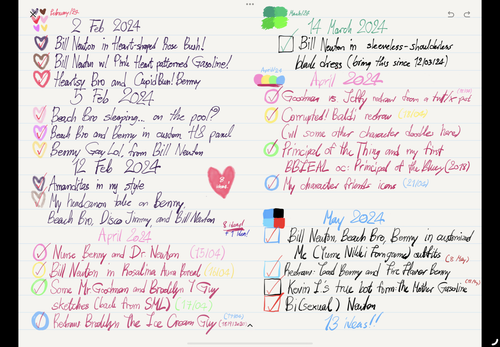 February 1st
2 Feb 2024
Bill Newton in Heart-shaped Rose Bush!
Bill Newton w/ Pink Heart patterned Gasoline!
Heartsy Bro and Cupid Bun! Benny
5 Feb 2024
Beach Bro sleeping... on the pool?
Beach Bro and Benny in custom HS panel
Benny Gay Lol, from Bill Newton
12 Feb 2024
Amanditas in my style
My headcanon take on Benny,
Beach Bro, Disco Jimmy, and Bill Newton
8 ideas!
April 2024
Nurse Benny and Dr. Newton (13/04)
Bill Newton in Rosalina Aura Bread
Some Mr. Goodman and Brooklyn T Guy
sketches (back from SML) (17/04)
Redraw Brooklyn the Ice Cream Guy
March 1st
14 March 2024
Bill Newton in sleeveless-shoulderless
black dress (bring this since 12/03/24)
April 2024
Goodman vs Jeffy redraw from a
Corrupted! Baldi redraw
(w/ some other character doodles here)
Principal of the Thing and my first
BBIEAL oc: Principal of the Bluey (2018)
My character friends' icons
May 2024
Bill Newton, Beach Bro, Benny in customised
Mc Clure Nikki Fnf game outfits
Redraw: Toad Benny and Fire Flower Benny
Kevin L's true bot form the Matter Gasoline
Bi(sexual) Newton
13 ideas!!